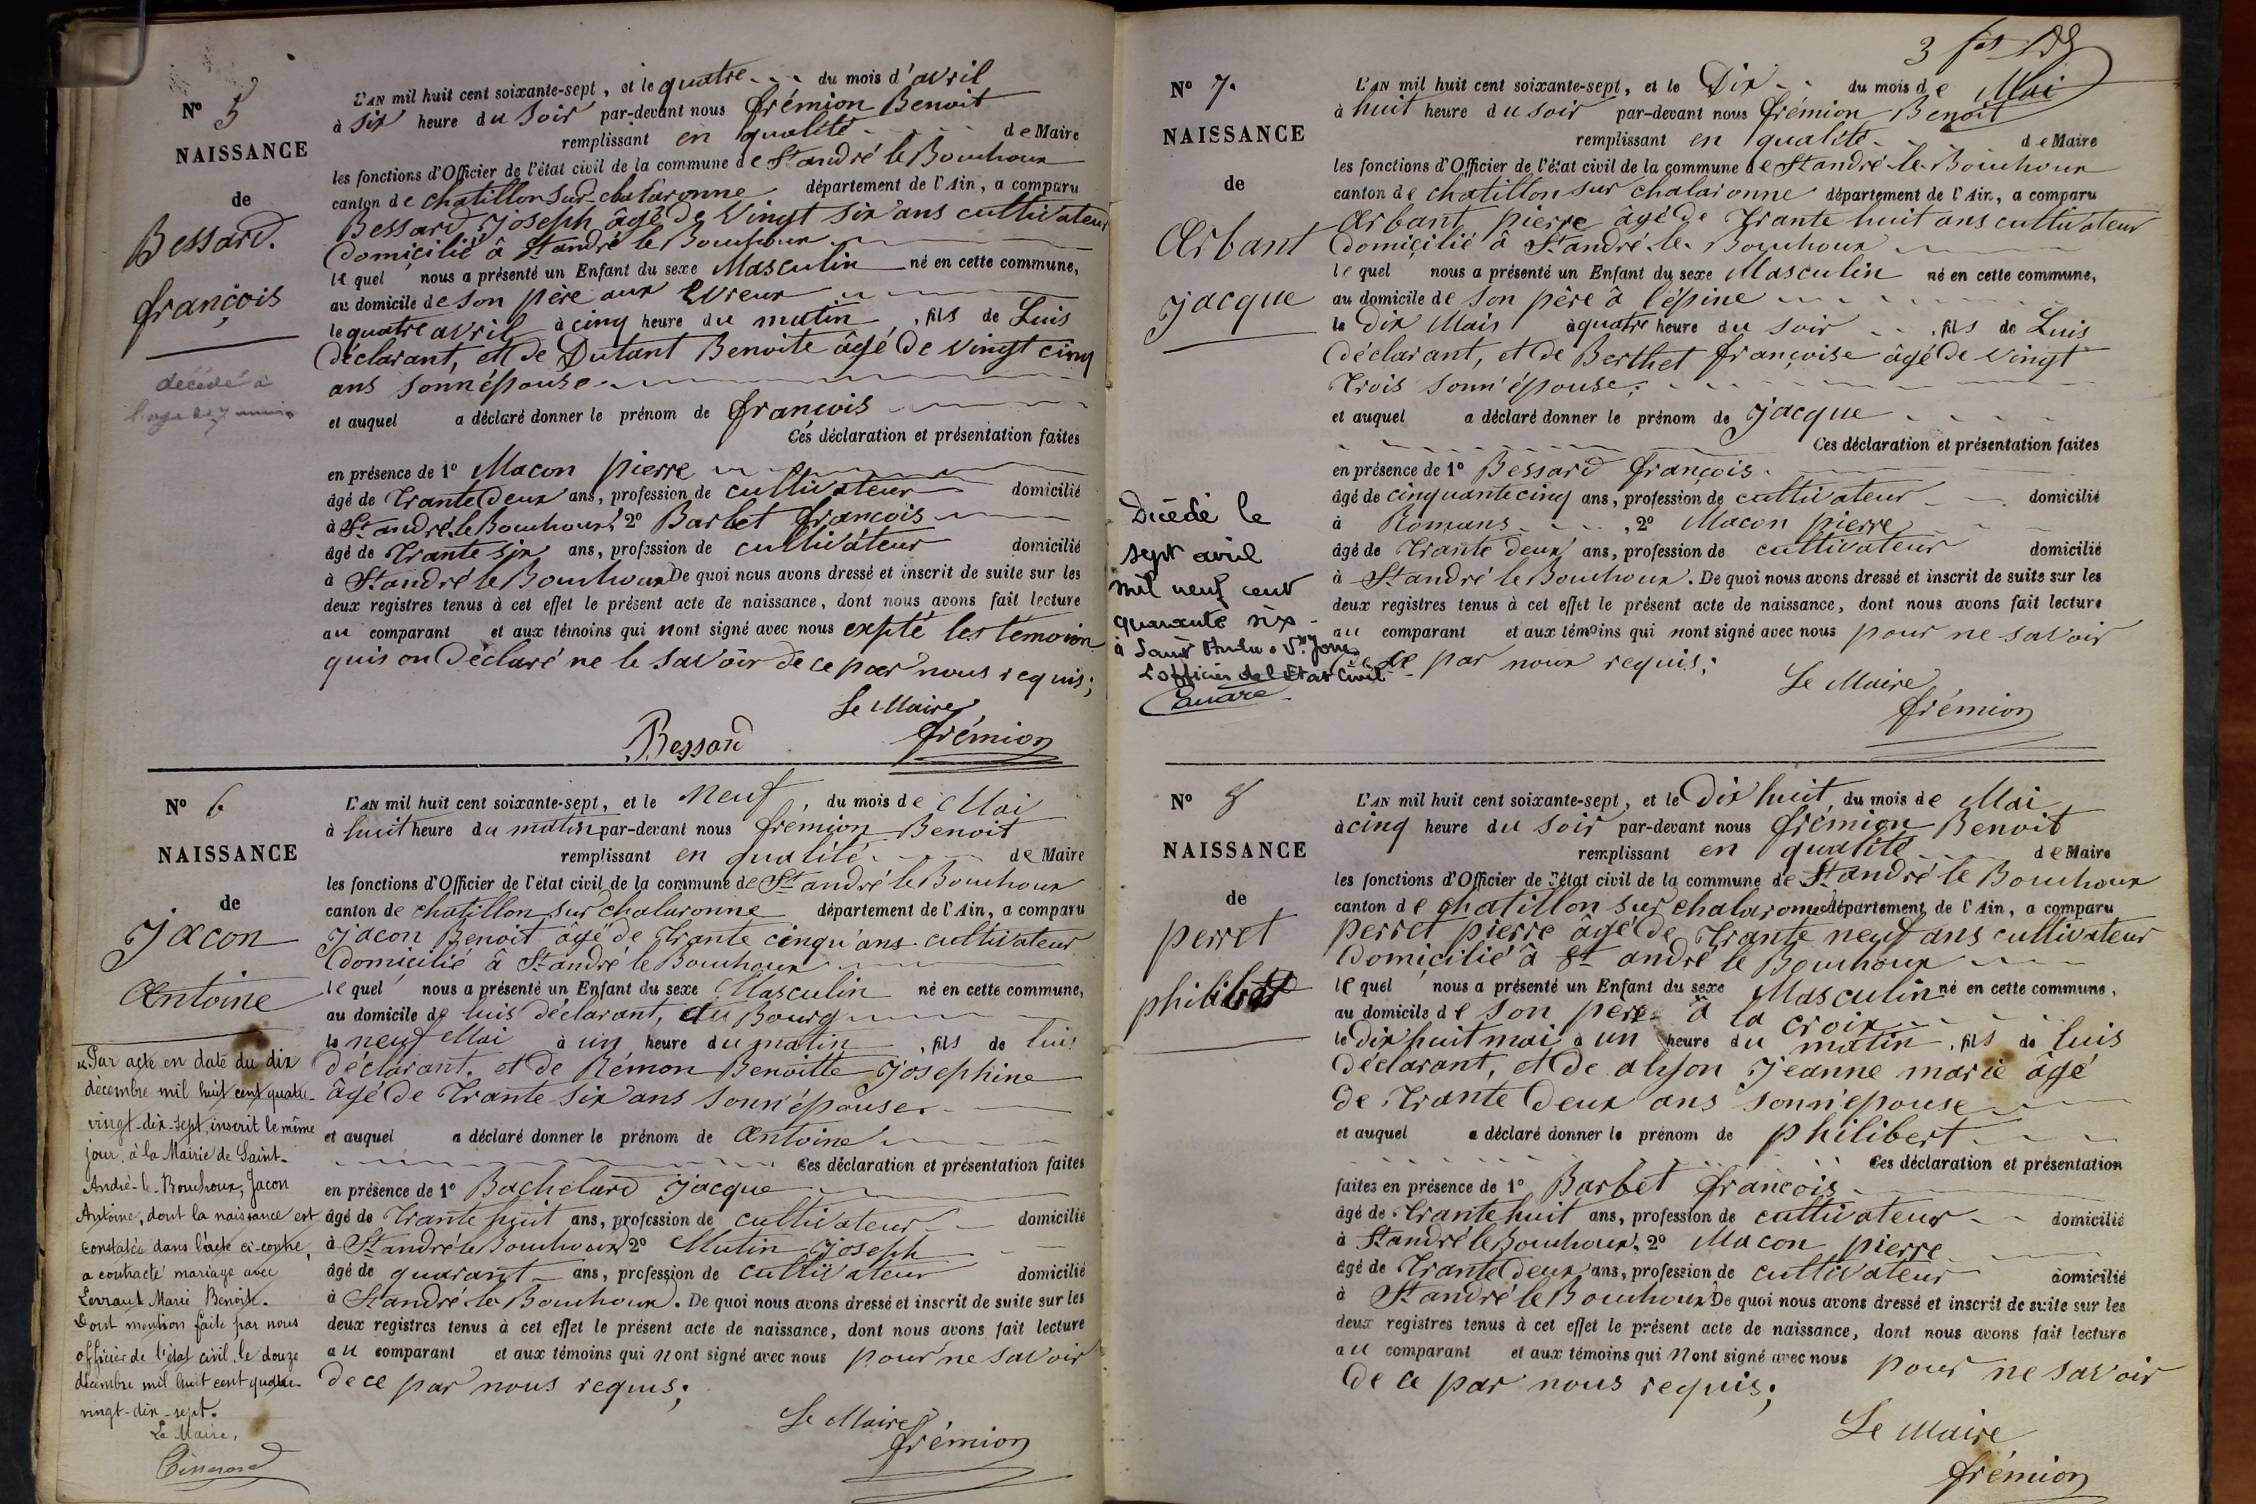 N° 5
NAISSANCE
de
Bessard
françois
décédé à
L'AN mil huit cent soixante-sept, et le quatre du mois d'avril
à six heure du soir par-devant nous frémion Benoit
remplissant en qualité de Maire
les fonctions d'Officier de l'état civil de la commune de St andré le Bouchoux
canton de chatillon sur chalaronne département de l'Ain, a comparu
Bessard Joseph âgé de Vingt six ans cultivateur
domicilié à St andré le Bouchoux
le quel nous a présenté un Enfant du sexe Masculin né en cette commune,
au domicile de son père aux Evreux
le quatre avril à cinq heure du matin, fils de Luis
déclarant, et de Dutant Benoite âgé de vingt cinq
ans sonn épouse
et auquel a déclaré donner le prénom de françois
Ces déclaration et présentation faites
en présence de 1° Macon pierre
âgé de trante deux ans, profession de cultivateur domicilié
à St andré le Bouchoux, 2° Barbet françois
âgé de trante six ans, profession de cultivateur domicilié
à St andré le Bouchoux De quoi nous avons dressé et inscrit de suite sur les
deux registres tenus à cet effet le présent acte de naissance, dont nous avons fait lecture
au comparant et aux témoins qui nont signé avec nous expté les témoin
quis on déclaré ne le savoir de ce par nous requis;
Le Maire
Bessard frémion
N° 6
NAISSANCE
de
Jacon
Antoine
Par acte en date du dix
décembre mil huit cent quatre-
vingt-dix-sept, inscrit le même
jour, à la Mairie de Saint-
André-le-Bouchoux, Jacon
Antoine, dont la naissance est
constatée dans l'acte ci-contre,
a contracté mariage avec
Marie Benoite.
Dont mention faite par nous
officier de l'état civil, le douze
décembre mil huit cent quatre-
vingt-dix-sept.
Le Maire,
L'AN mil huit cent soixante-sept, et le neuf, du mois de Mai
à huit heure du matin par-devant nous fremion Benoit
remplissant en qualité de Maire
les fonctions d'Officier de l'état civil de la commune de St andré le Bouchoux
canton de chatillon sur chalaronne département de l'Ain, a comparu
Jacon Benoit âgé de trante cinqu'ans cultivateur
domicilié à St andré le Bouchoux
le quel nous a présenté un Enfant du sexe Masculin né en cette commune,
au domicile de luis déclarant, au Bourg
le neuf Mai à un heure du matin, fils de luis
déclarant, et de Rémon Benoitte Josephine
âgé de trante six ans sonn'épouse
et auquel a déclaré donner le prénom de Antoine
Ces déclaration et présentation faites
en présence de 1° Bachelard Jacque
âgé de trante huit ans, profession de cultivateur domicilié
à St andré le Bouchoux 2° Mutin Joseph
âgé de quarant ans, profession de cultivateur domicilié
à St andré le Bouchoux. De quoi nous avons dressé et inscrit de suite sur les
deux registres tenus à cet effet le présent acte de naissance, dont nous avons fait lecture
au comparant et aux témoins qui nont signé avec nous pour ne savoir
de ce par nous requis;
Le Maire
frémion
N° 7.
NAISSANCE
de
Arbant
Jacque
Décédé le
sept avril
mil neuf cent
quarante six
à Saint
L'officier de l'Etat Civil
L'AN mil huit cent soixante-sept, et le Dix du mois de Mai
à huit heure du soir par-devant nous frémion Benoit
remplissant en qualité de Maire
les fonctions d'Officier de l'état civil de la commune de St andré le Bouchoux
canton de chatillon sur chalaronne département de l'Ain, a comparu
Arbant pierre âgé de trante huit ans cultivateur
domicilié à St andré le Bouchoux
le quel nous a présenté un Enfant du sexe Masculin né en cette commune,
au domicile de son père à l'épine
le dix Mais à quatre heure du soir, fils de Luis
déclarant, et de Berthet françoise âgé de vingt
trois sonn'épouse;
et auquel a déclaré donner le prénom de Jacque
Ces déclaration et présentation faites
en présence de 1° Bessard françois
âgé de cinquante cinq ans, profession de cultivateur domicilié
à Romans, 2° Macon pierre
âgé de trante deux ans, profession de cultivateur domicilié
à St andré le Bouchoux. De quoi nous avons dressé et inscrit de suite sur les
deux registres tenus à cet effet le présent acte de naissance, dont nous avons fait lecture
au comparant et aux témoins qui nont signé avec nous pour ne savoir
de ce par nous requis;
Le Maire
frémion
N° 8
NAISSANCE
de
perret
philibert
L'AN mil huit cent soixante-sept, et le Dix huit, du mois de Mai
à cinq heure du soir par-devant nous frémion Benoit
remplissant en qualité de Maire
les fonctions d'Officier de l'état civil de la commune de St andré le Bouchoux
canton de chatillon sur chalaronne département de l'Ain, a comparu
perret pierre âgé de trante neuf ans cultivateur
domicilié à St andré le Bouchoux
le quel nous a présenté un Enfant du sexe Masculin né en cette commune,
au domicile de son père à la croix
le dix huit mai à un heure du matin, fils de luis
déclarant, et de alyon Jeanne marie âgé
de trante deux ans sonn'epouse
et auquel a déclaré donner le prénom de philibert
Ces déclaration et présentation
faites en présence de 1° Barbet françois
âgé de trante huit ans, profession de cultivateur domicilié
à St andré le Bouchoux. 2° Macon pierre
âgé de trante deux ans, profession de cultivateur domicilié
à St andré le Bouchoux De quoi nous avons dressé et inscrit de suite sur les
deux registres tenus à cet effet le présent acte de naissance, dont nous avons fait lecture
au comparant et aux témoins qui nont signé avec nous pour ne savoir
de ce par nous requis;
Le Maire
frémion